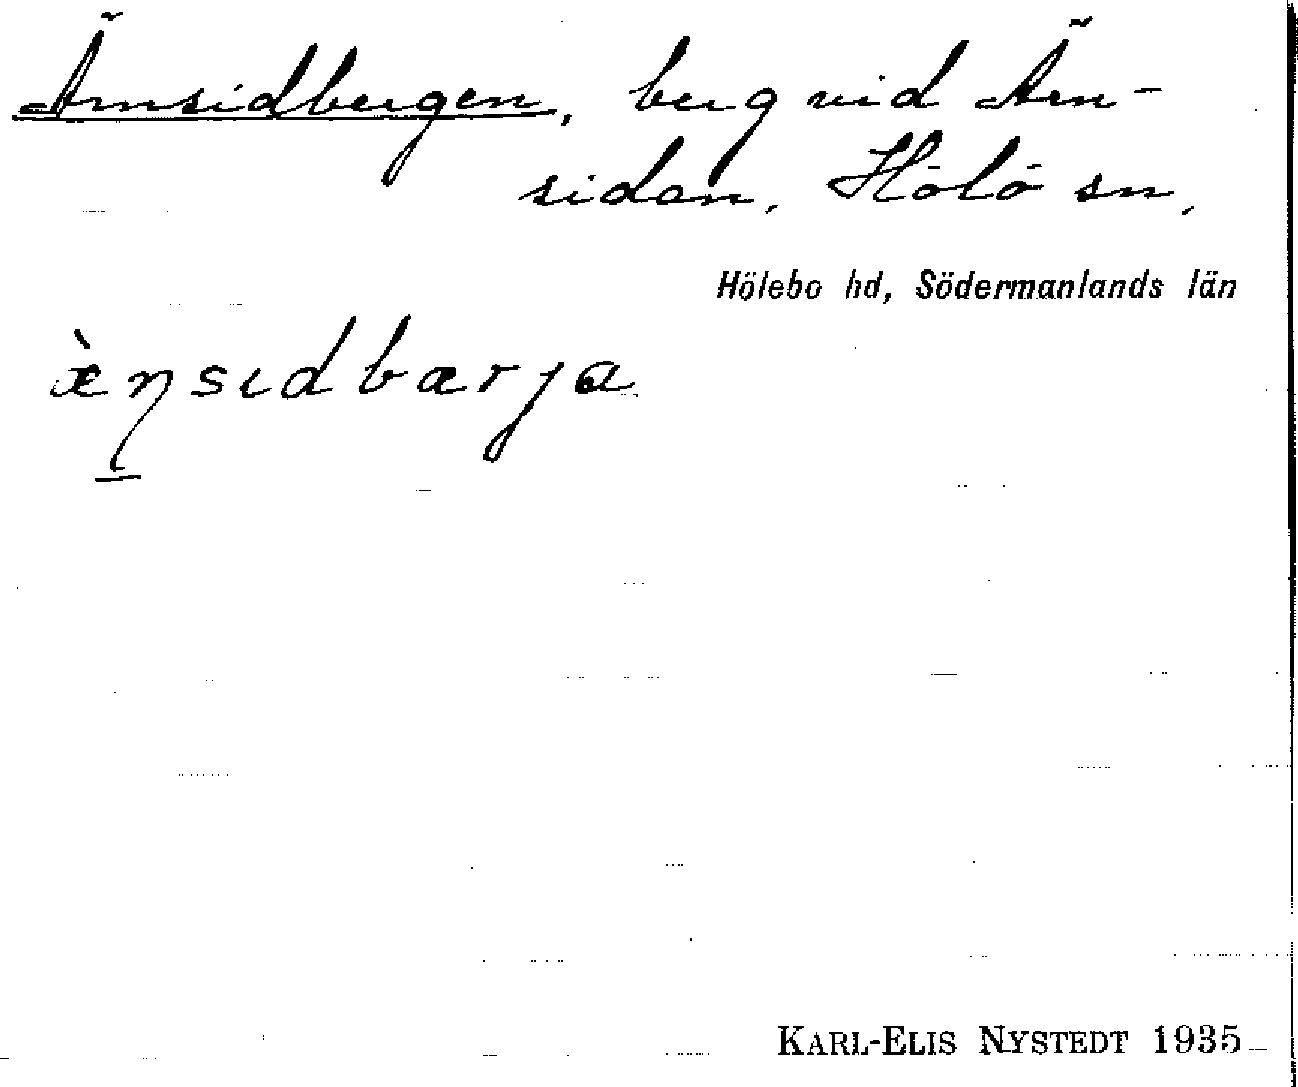 Ärnsidbergen, berg vid Ärn-
sidan, Hölö sn,
Hölebo hd, Södermanlands län
æ̀ŋsɩdbærja
KARL-ELIS NYSTEDT 1935